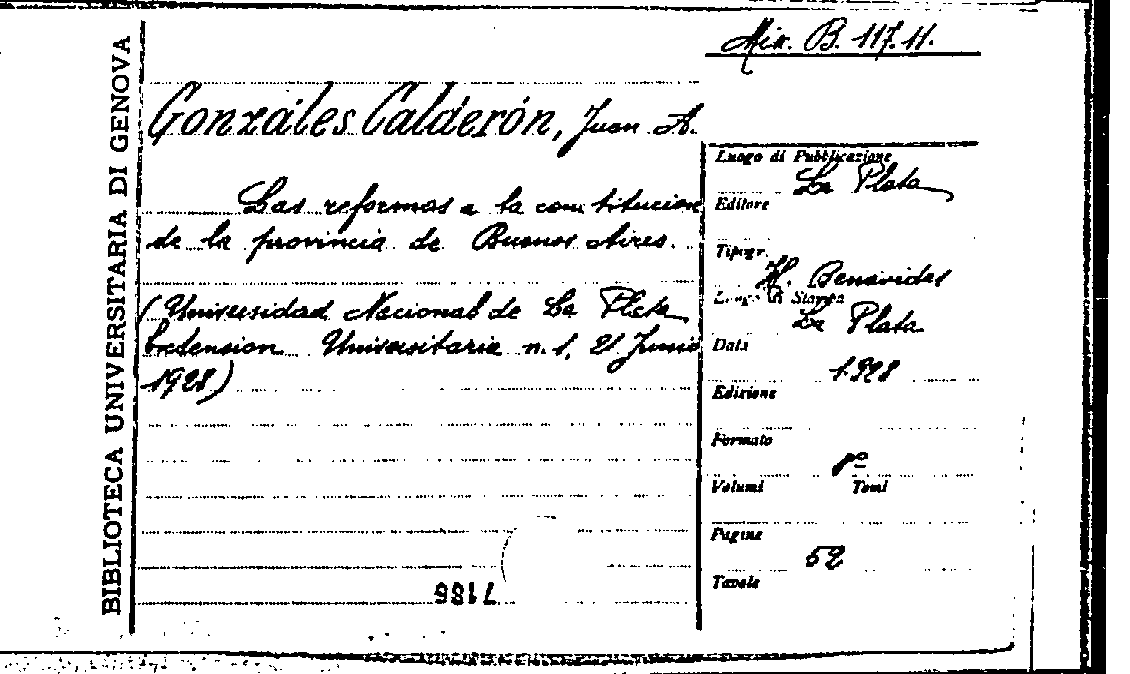 BIBLIOTECA UNIVERSITARIA DI GENOVA
Mis. B. 117.11.
Gonzáles Calderón, Juan A.
Las reformas a la constitucion
de la provincia de Buenos Aires.
(Universidad Nacional de La Plata
Extension Universitaria n. 1, 21 Junio
1928)
Luogo di Pubblicazione
La Plata
Editore
Tipogr.
H. Benavides
Luogo di Stampa
La Plata
Data
1928
Edizione
Formato
8º
Volumi Tomi
Pagine
52
Tavole
7186